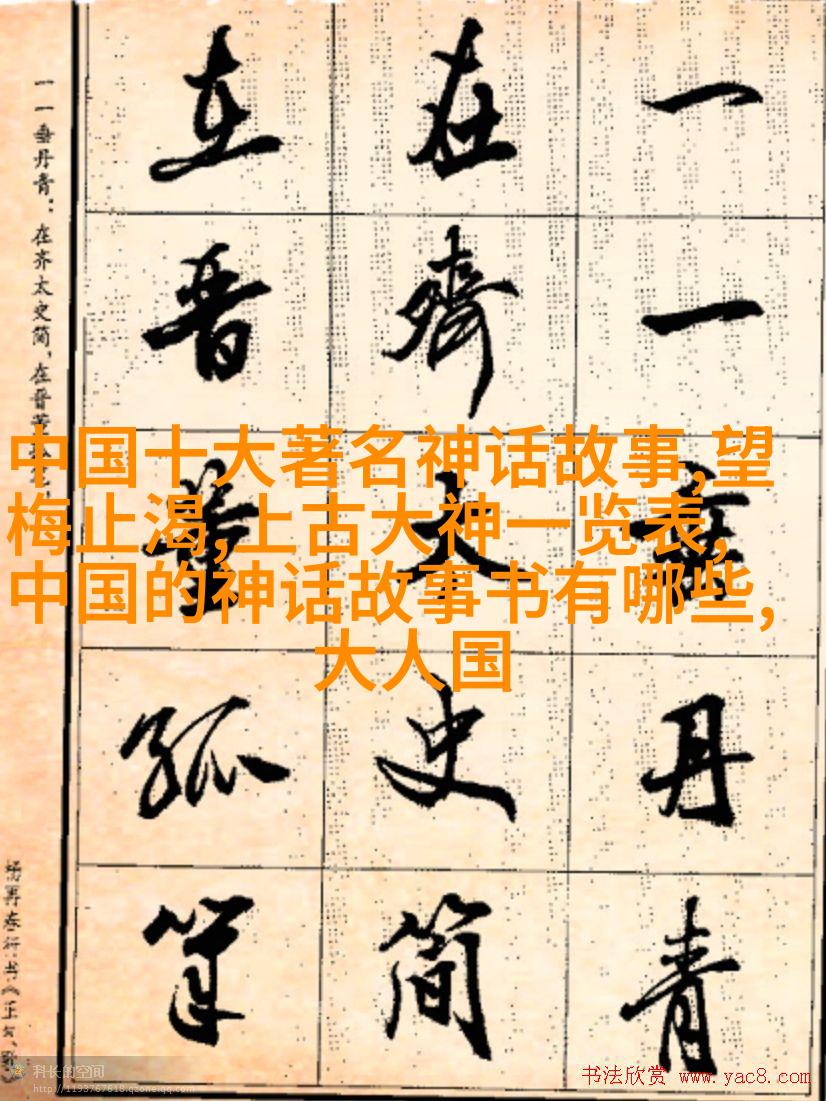 一一垂丹青
在齊太史简
在晋董孤筆
一一垂丹青：在齐太史简，在晋
杨再春行书《正气歌》
中国十大著名神话故事,望
梅止渴,上古大神一览表,
中国的神话故事书有哪些,
大人国
科长的空间
http://1193767618.qzone.qq.com
书法欣赏 www.yac8.com